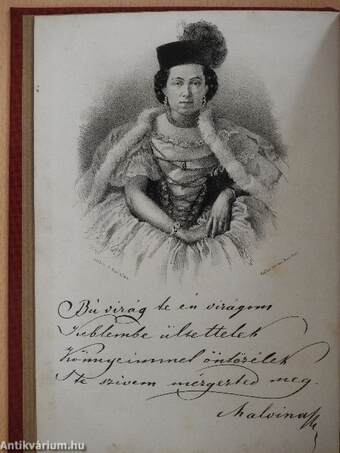 Bú virág te én virágom
Keblembe ültettelek
Könnyeimmel öntözélek
S te szivem mérgezted meg.
Malvina
Antikvárium.hu